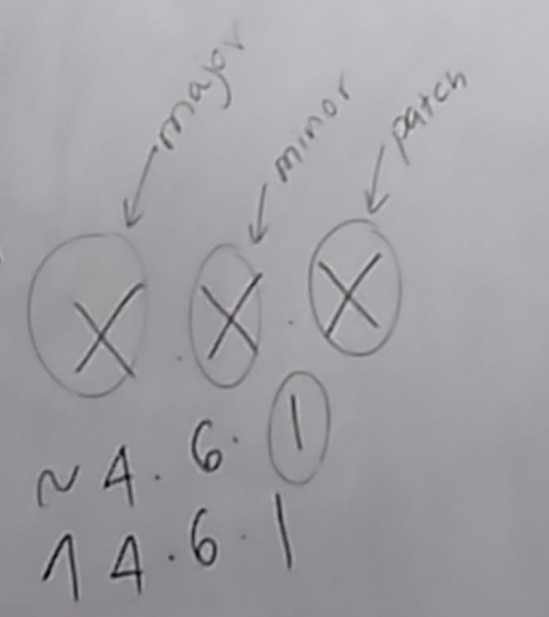 major
minor
patch
X . X . X
~4.6.1
^4.6.1